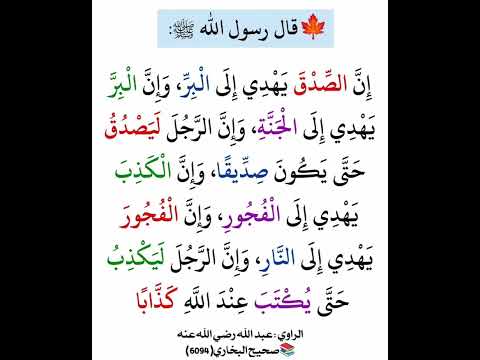 قال رسول الله ﷺ:
إِنَّ الصِّدْقَ يَهْدِي إِلَى الْبِرِّ، وَإِنَّ الْبِرَّ
يَهْدِي إِلَى الْجَنَّةِ، وَإِنَّ الرَّجُلَ لَيَصْدُقُ
حَتَّى يَكُونَ صِدِّيقًا، وَإِنَّ الْكَذِبَ
يَهْدِي إِلَى الْفُجُورِ، وَإِنَّ الْفُجُورَ
يَهْدِي إِلَى النَّارِ، وَإِنَّ الرَّجُلَ لَيَكْذِبُ
حَتَّى يُكْتَبَ عِنْدَ اللَّهِ كَذَّابًا
الراوي: عبد الله رضي الله عنه
صحيح البخاري (6094)